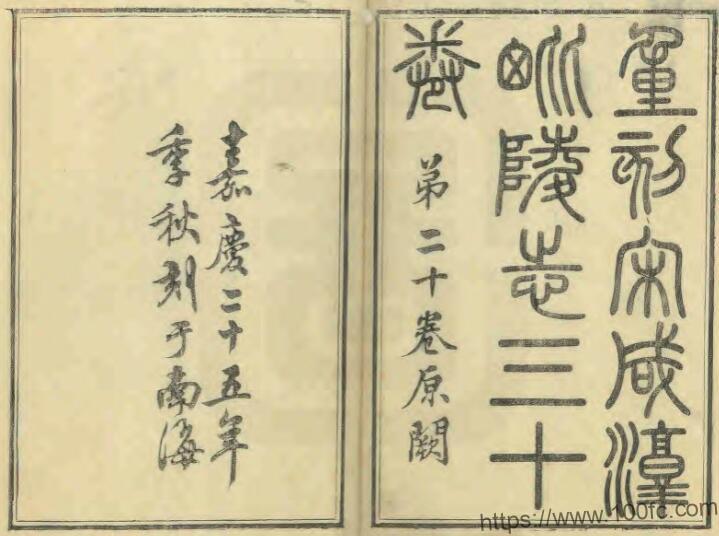 重刻宋咸淳
毗陵志三十
卷
弟二十卷原闕
嘉慶二十五年
季秋刻于南海
https://www.100fc.com